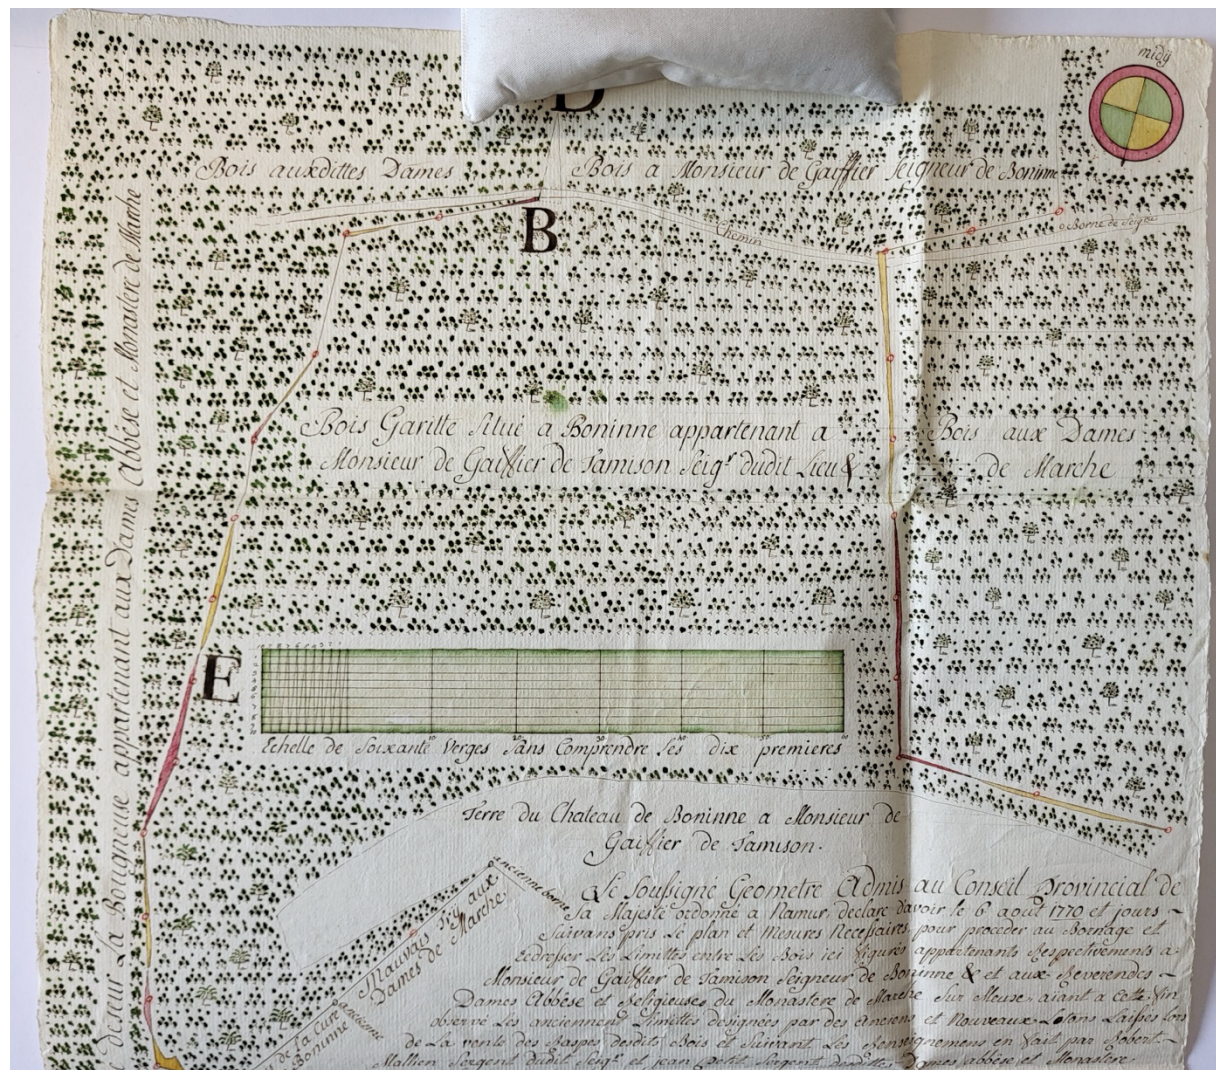 midÿ
D
Bois auxdittes Dames
Bois a Monsieur de Gaiffier Seigneur de Boninne
B
Chemin
Borne de Seigr
deseur La Bourgneue appartenant aux Dames Abbèse et Monastere de Marche
Bois Garitte Situé a Boninne appartenant a
Monsieur de Gaiffier de Tamison Seigr dudit Lieu &
Bois aux Dames
de Marche
E
10 20 30 40 50 60
Echelle de Soixante Verges Sans Comprendre les dix premieres
Terre du Chateau de Boninne a Monsieur de
Gaiffier de Tamison.
ancienne borne
Mauvais aux
Dames de Marche
de la Cure
Boninne
ancienne
Le Soussigné Geometre Admis au Conseil provincial de
Sa Majesté ordonné a Namur declare davoir le 6 août 1770 et jours
Suivans pris Le plan et Mesures Necessaires, pour proceder au Bornage et
Redresser Les Limittes entre Les Bois ici figurés appartenants Respectivements a
Monsieur de Gaiffier de Tamison Seigneur de Boninne & et aux Reverendes
Dames Abbèse et Religieuses du Monastere de Marche Sur Meuse, aiant a cette fin
observé Les anciennent Limittes designées par des Anciens et Nouveaux Lotons Laissés Lors
de La vente des Raspes desdits Bois et Suivant Les Renseignemens en fait par Robert
Mallien Sergent dudit Seigr et jean petit Sergent desdittes Dames abbèse et Monastere.